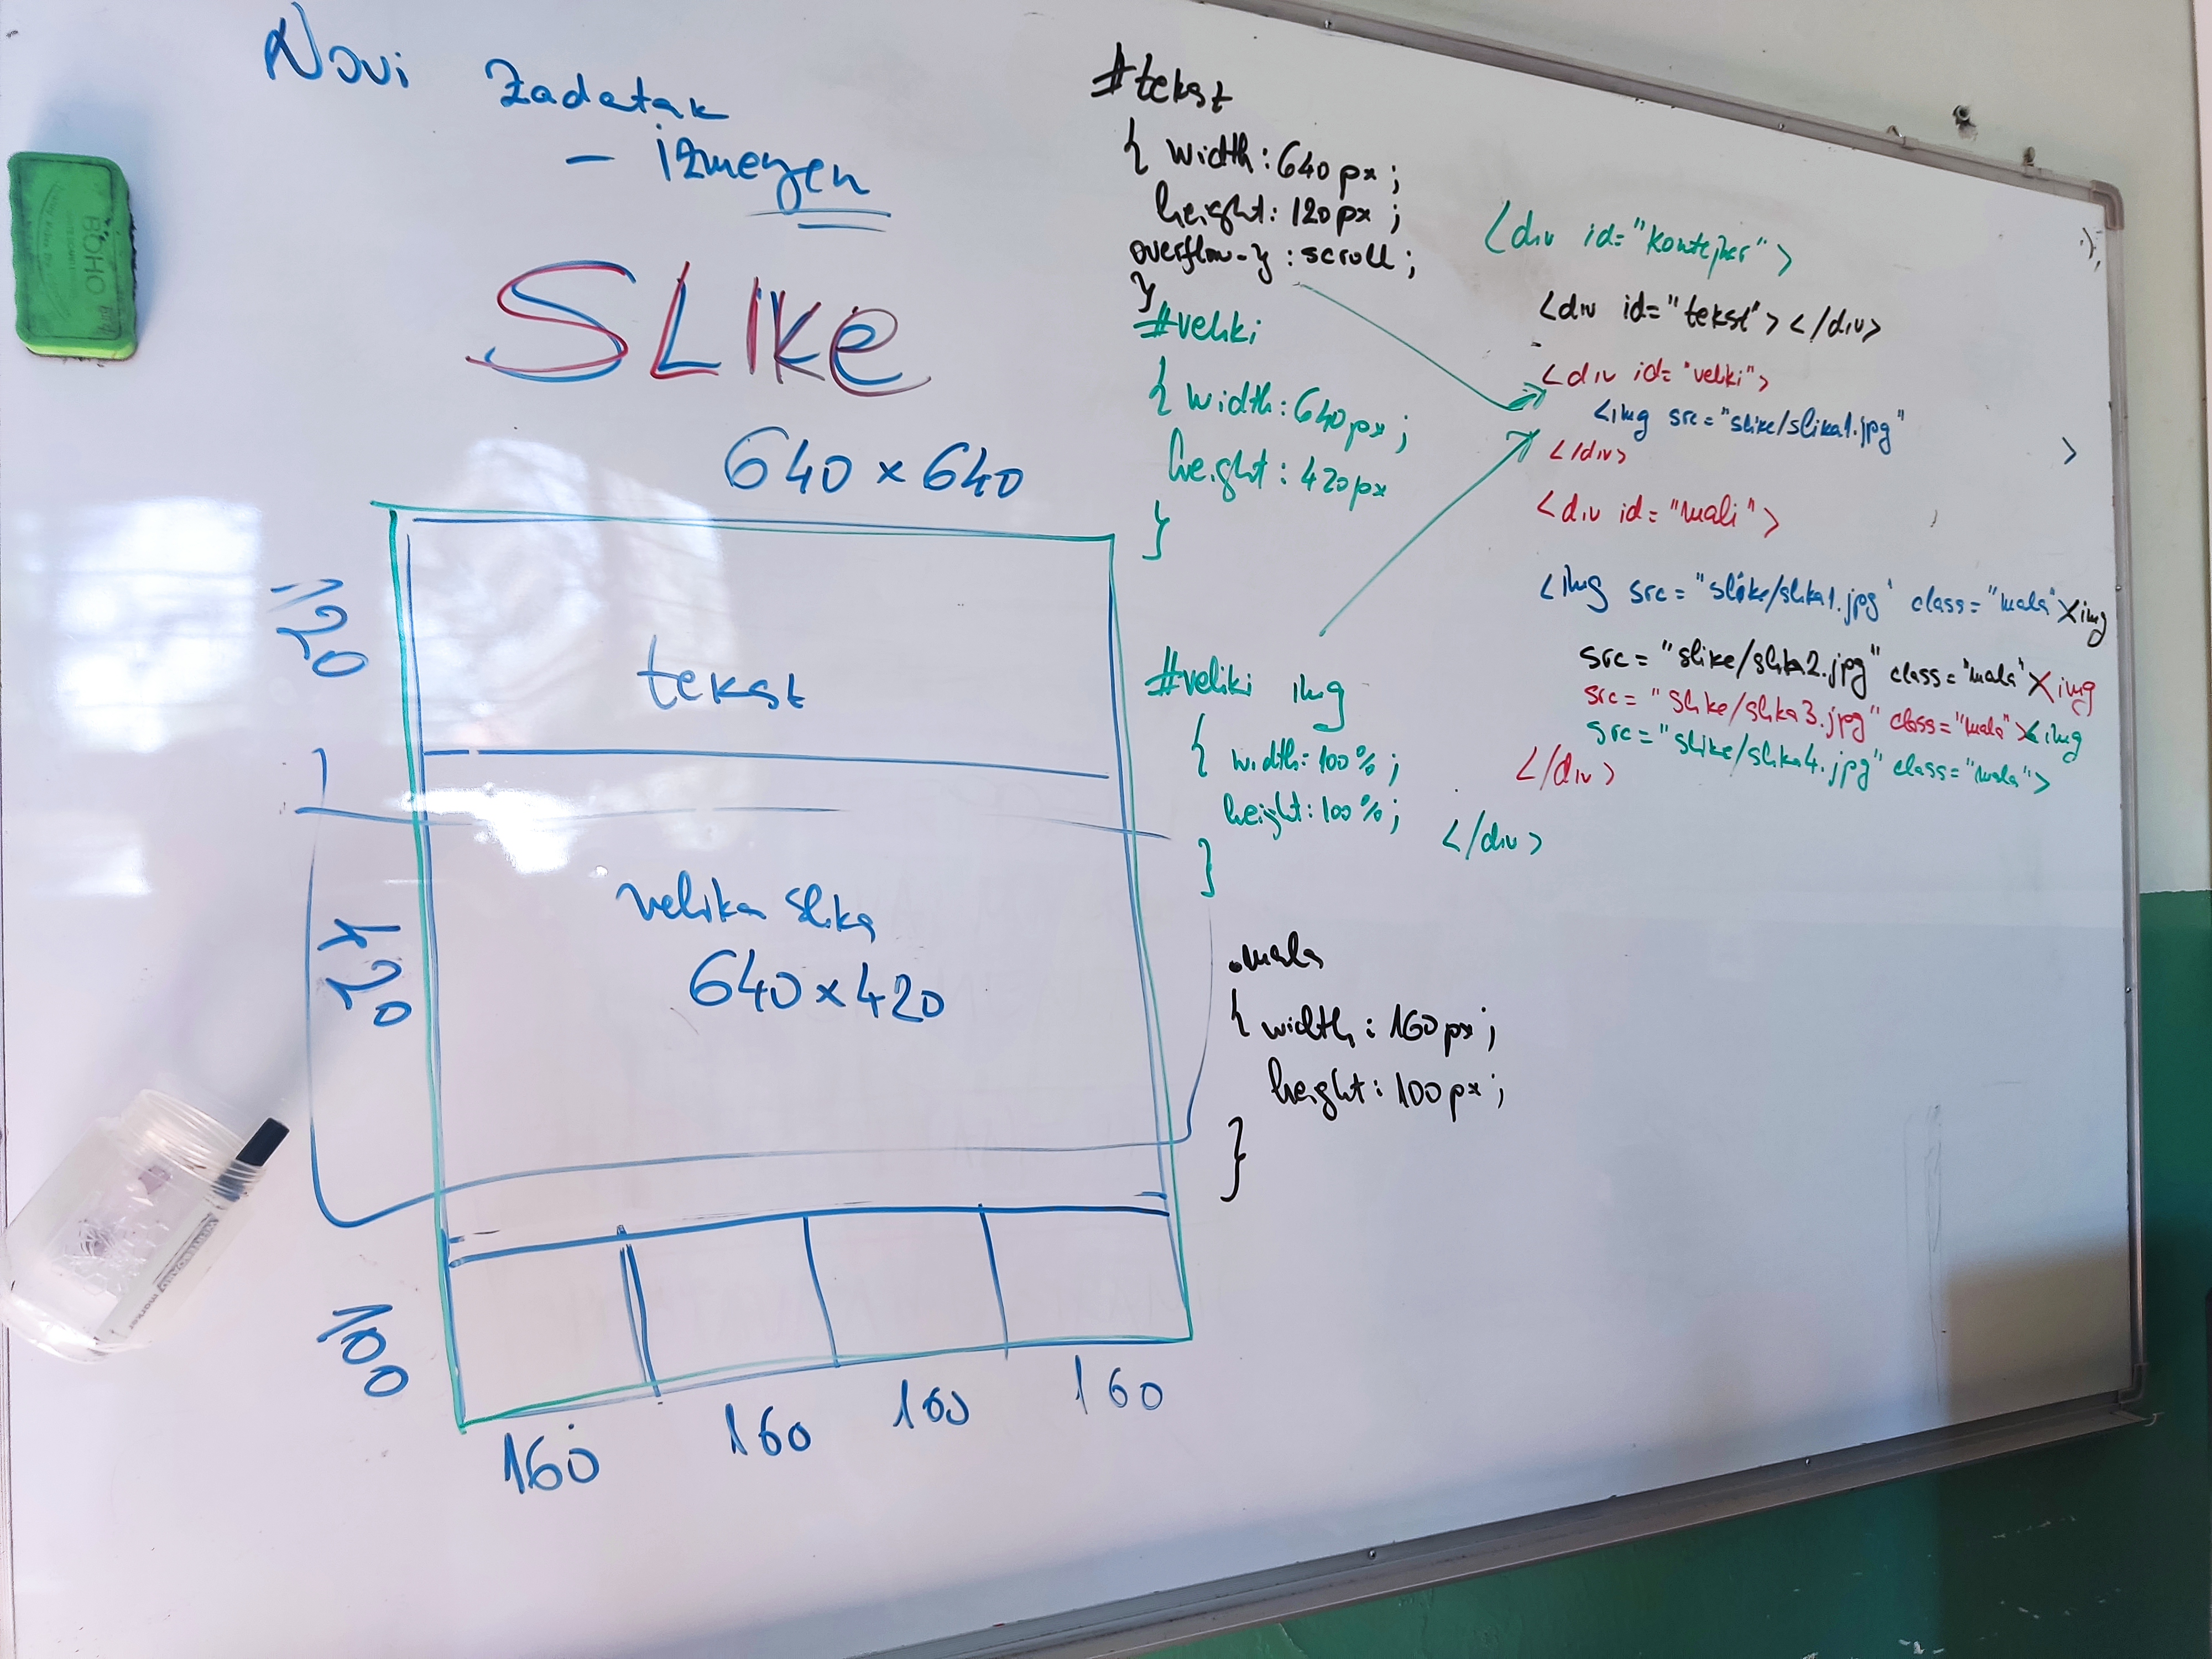 Novi zadatak
- izmenjen
SLIKE
640 x 640
120
tekst
420
velika slika
640 x 420
100
160
160
160
160
#tekst
{ width: 640px;
height: 120px;
overflow-y: scroll;
}
#veliki
{ width: 640px;
height: 420px
}
#veliki img
{ width: 100%;
height: 100%;
}
.mala
{ width: 160px;
height: 100px;
}
<div id="kontejner">
<div id="tekst"></div>
<div id="veliki">
<img src="slike/slika1.jpg" >
</div>
<div id="mali">
<img src="slike/slika1.jpg" class="mala"><img
src="slike/slika2.jpg" class="mala"><img
src="slike/slika3.jpg" class="mala"><img
src="slike/slika4.jpg" class="mala">
</div>
</div>
BOHO